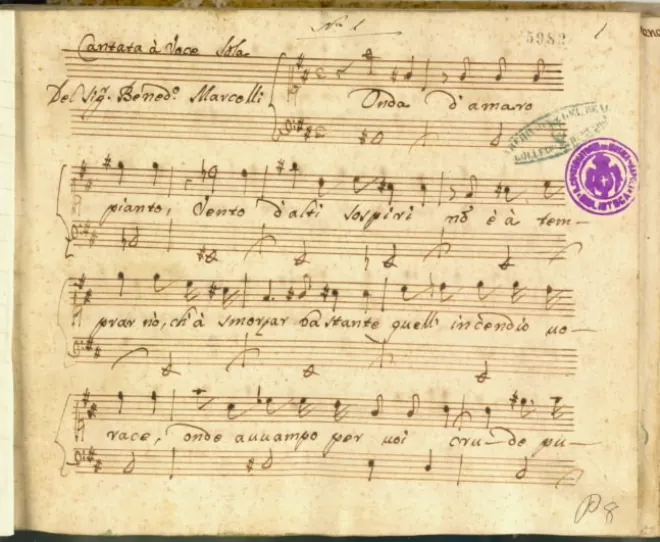 No. 1
5982
1
Cantata à Voce Sola
Del Sigr. Benedo. Marcelli
Onda d'amaro
pianto, Vento d'alti sospiri nõ è à tem-
prar nò, ch'à smorzar bastante quell' incendio uo-
race, onde auuampo per uoi cru-de pu-
BIBLIOTECA
P 8